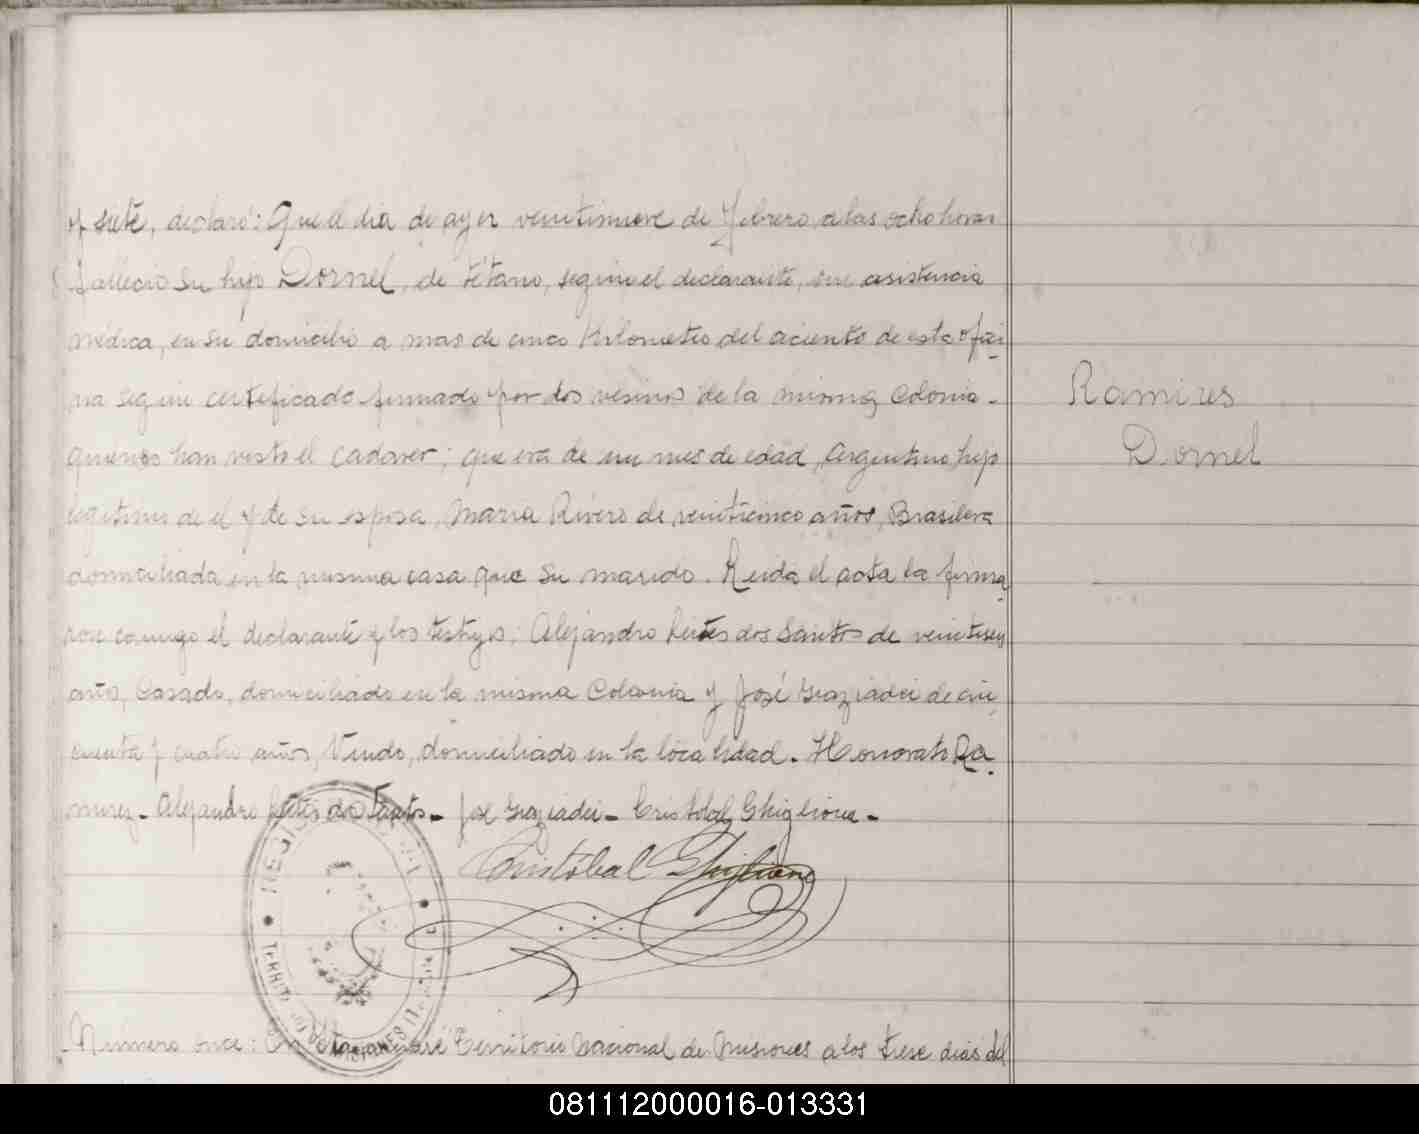 y siete, declaró: Que el dia de ayer veintinueve de Febrero a las ocho horas
falleció su hijo Dornel, de tétano, según el declarante, sin asistencia
médica, en su domicilio a mas de cinco Kilometros del aciento de esta ofici
na segun certificado firmado por dos vesinos de la misma Colonia -
quienes han visto el cadaver; que era de un mes de edad, Argentino hijo
legitimo de el y de su esposa, Maria Rivero de veinticinco años, Brasilera
domiciliada en la misma casa que su marido. Leida el acta la firma
ron conmigo el declarante y los testigos; Alejandro dos Santos de veintiseis
años, Casado, domiciliado en la misma Colonia y José Graziadei de cin
cuenta y cuatro años, Viudo, domiciliado en la localidad. Honorato Ra
mirez - Alejandro dos Santos - José Graziadei - Cristobal Ghiglione -
Cristóbal Ghiglione
Número once: En Territorio Nacional de Misiones a los trese dias del
Ramires
Dornel
REGIS
TERRIT MISIONES
081112000016-013331